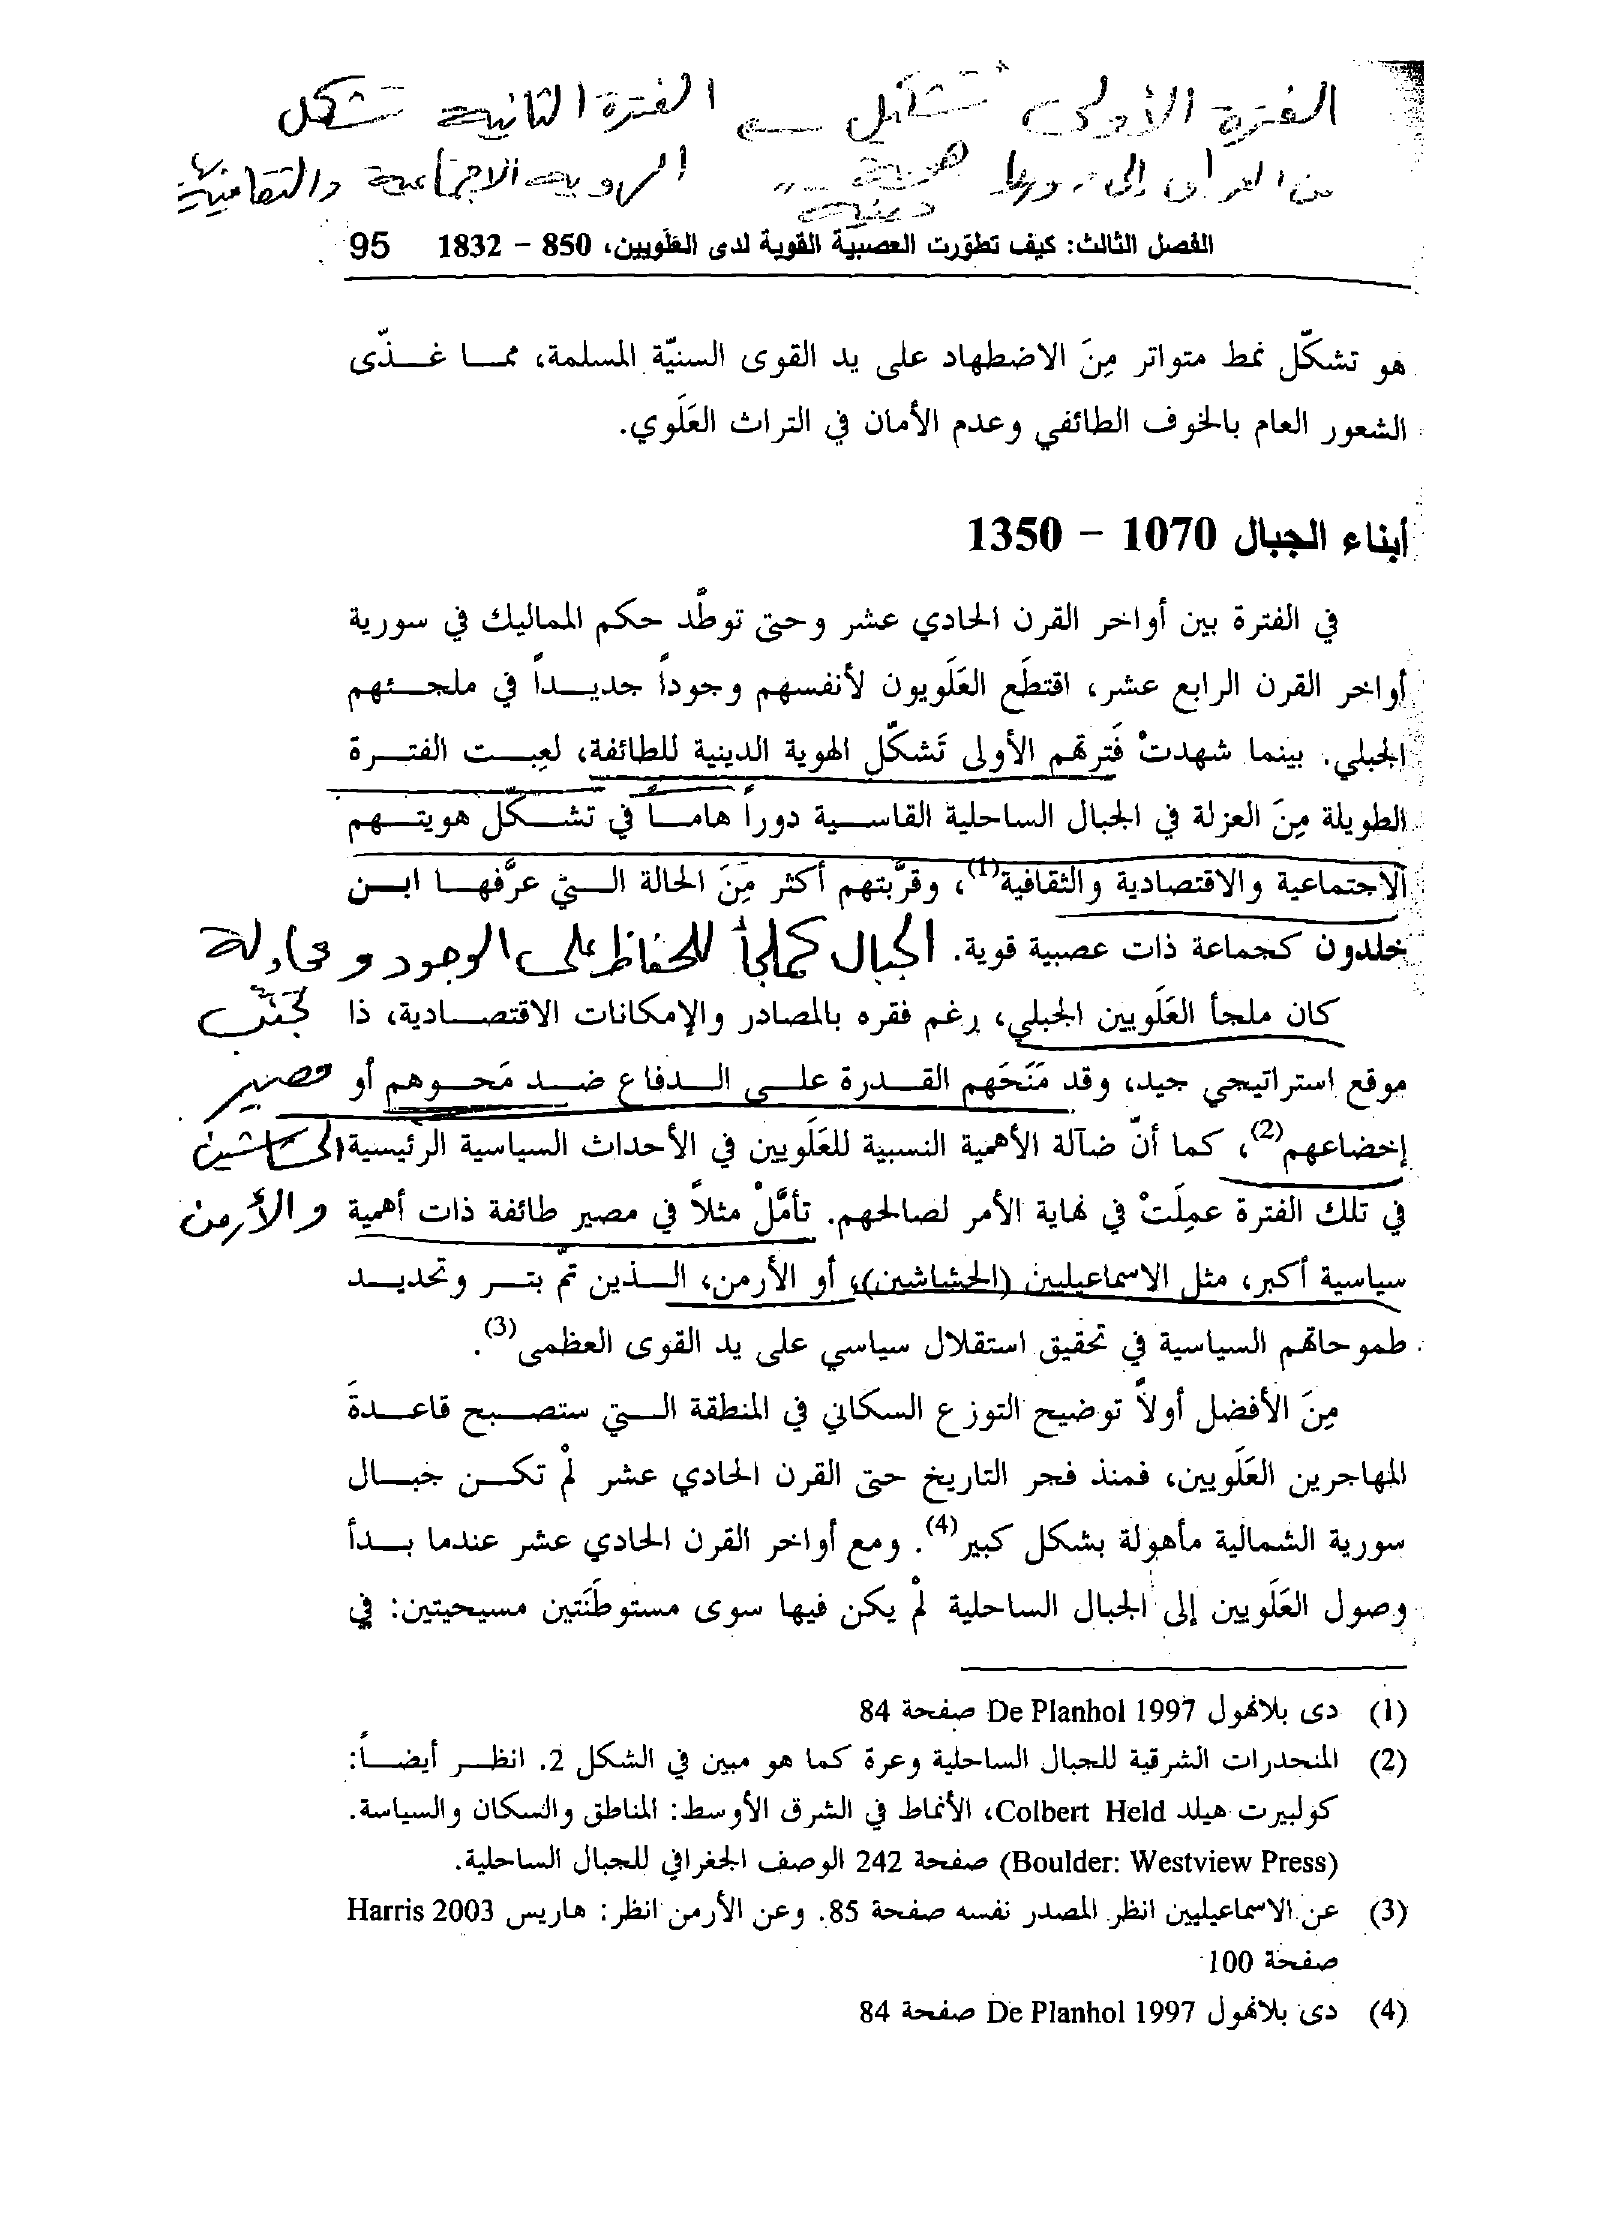 الفترة الأولى تشكيل ← الفترة الثانية تشكل
من العراق إلى هوية دينية الهوية الاجتماعية والثقافية
الفصل الثالث: كيف تطوّرت العصبيّة القوية لدى العَلَويين، 850 – 1832 95
هو تشكّل نمط متواتر مِنَ الاضطهاد على يد القوى السنيّة المسلمة، مما غذّى
الشعور العام بالخوف الطائفي وعدم الأمان في التراث العَلَوي.
أبناء الجبال 1070 – 1350
في الفترة بين أواخر القرن الحادي عشر وحتى توطَّد حكم المماليك في سورية
أواخر القرن الرابع عشر، اقتطَع العَلَويون لأنفسهم وجوداً جديداً في ملجئهم
الجبلي. بينما شهدتْ فَترتهم الأولى تَشكّل الهوية الدينية للطائفة، لعِبت الفترة
الطويلة مِنَ العزلة في الجبال الساحلية القاسية دوراً هاماً في تشكّل هويتهم
الاجتماعية والاقتصادية والثقافية(1)، وقرَّبتهم أكثر مِنَ الحالة التي عرَّفها ابن
خلدون كجماعة ذات عصبية قوية. الجبال كملجأ للحفاظ على الوجود ومحاولة
كان ملجأ العَلَويين الجبلي، رغم فقره بالمصادر والإمكانات الاقتصادية، ذا تجنّب
موقع استراتيجي جيد، وقد مَنَحَهم القدرة على الدفاع ضد مَحوهم أو مصير
إخضاعهم(2)، كما أنّ ضآلة الأهمية النسبية للعَلَويين في الأحداث السياسية الرئيسية الحشاشين
في تلك الفترة عمِلَتْ في نهاية الأمر لصالحهم. تأمَّلْ مثلاً في مصير طائفة ذات أهمية والأرمن
سياسية أكبر، مثل الاسماعيليين (الحشاشين)، أو الأرمن، الذين تمّ بتر وتحديد
طموحاتهم السياسية في تحقيق استقلال سياسي على يد القوى العظمى(3).
مِنَ الأفضل أولاً توضيح التوزع السكاني في المنطقة التي ستصبح قاعدةَ
المهاجرين العَلَويين، فمنذ فجر التاريخ حتى القرن الحادي عشر لمْ تكن جبال
سورية الشمالية مأهولة بشكل كبير(4). ومع أواخر القرن الحادي عشر عندما بدأ
وصول العَلَويين إلى الجبال الساحلية لمْ يكن فيها سوى مستوطَنَتين مسيحيتين: في
(1) دى بلانهول De Planhol 1997 صفحة 84
(2) المنحدرات الشرقية للجبال الساحلية وعرة كما هو مبين في الشكل 2. انظر أيضاً:
كولبيرت هيلد Colbert Held، الأنماط في الشرق الأوسط: المناطق والسكان والسياسة.
(Boulder: Westview Press) صفحة 242 الوصف الجغرافي للجبال الساحلية.
(3) عن الاسماعيليين انظر المصدر نفسه صفحة 85. وعن الأرمن انظر: هاريس Harris 2003
صفحة 100
(4) دى بلانهول De Planhol 1997 صفحة 84